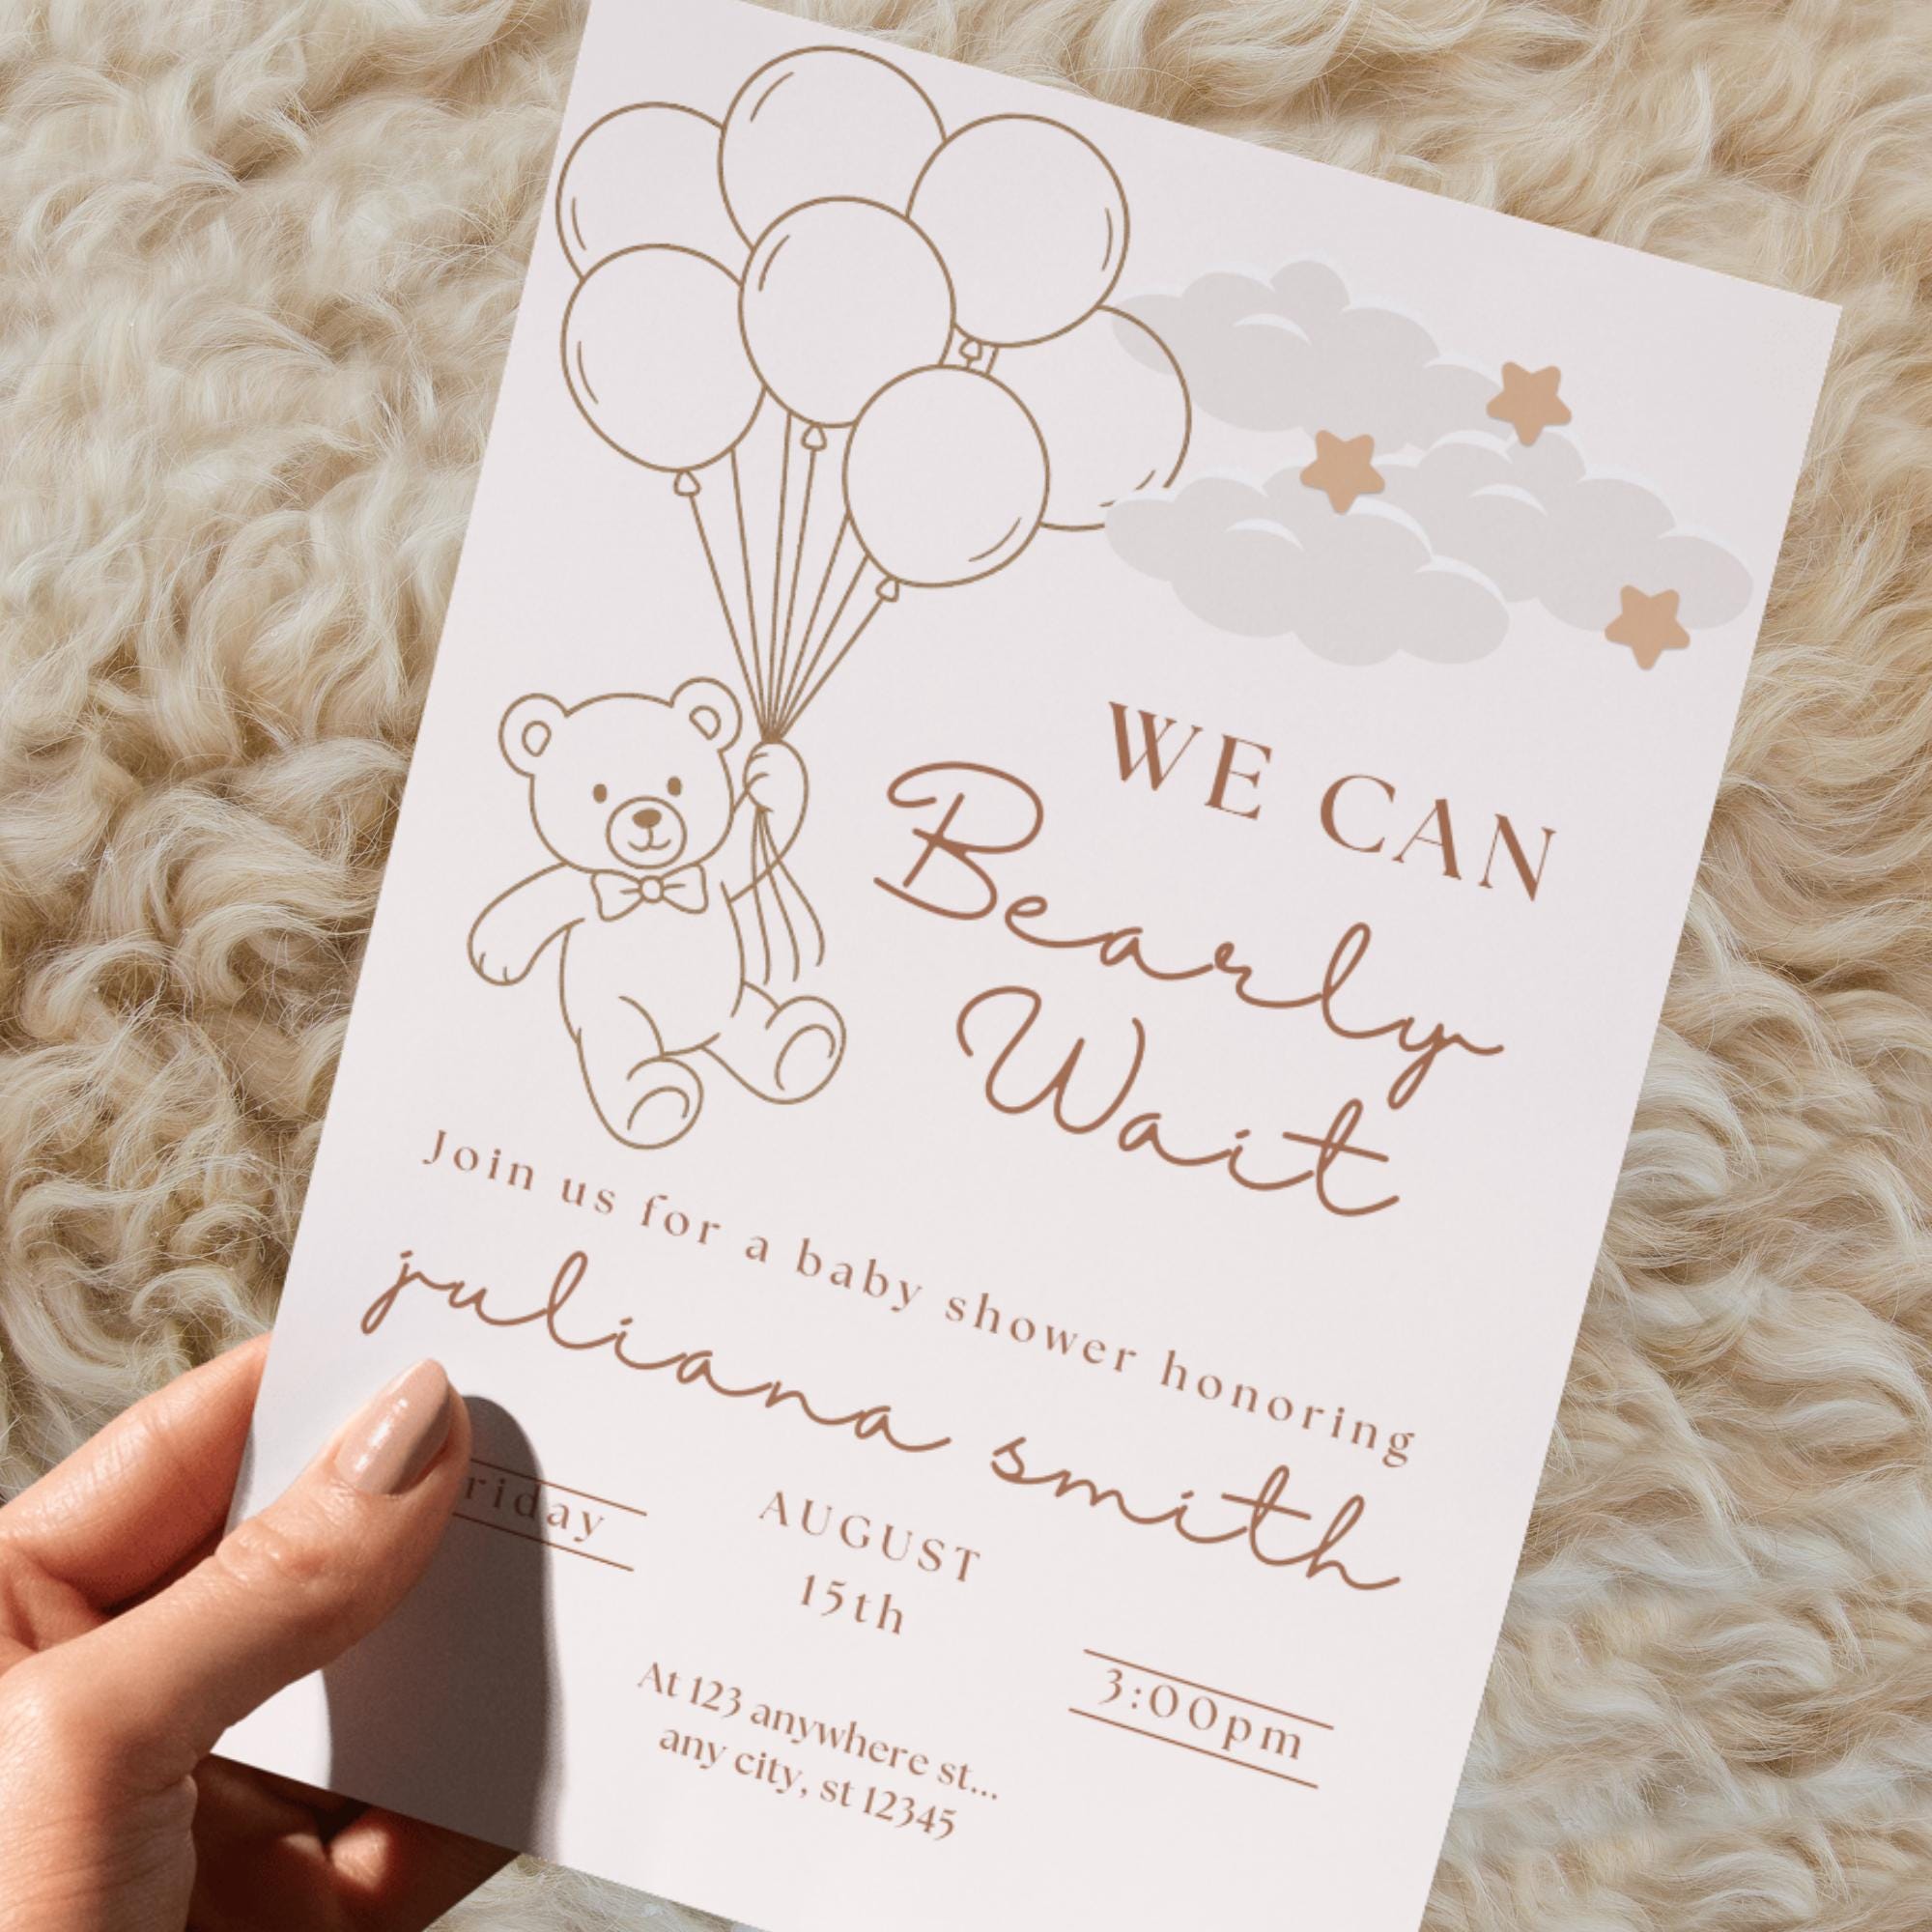 WE CAN
Bearly
Wait
Join us for a baby shower honoring
juliana smith
riday
AUGUST
15th
3:00pm
At 123 anywhere st...
any city, st 12345